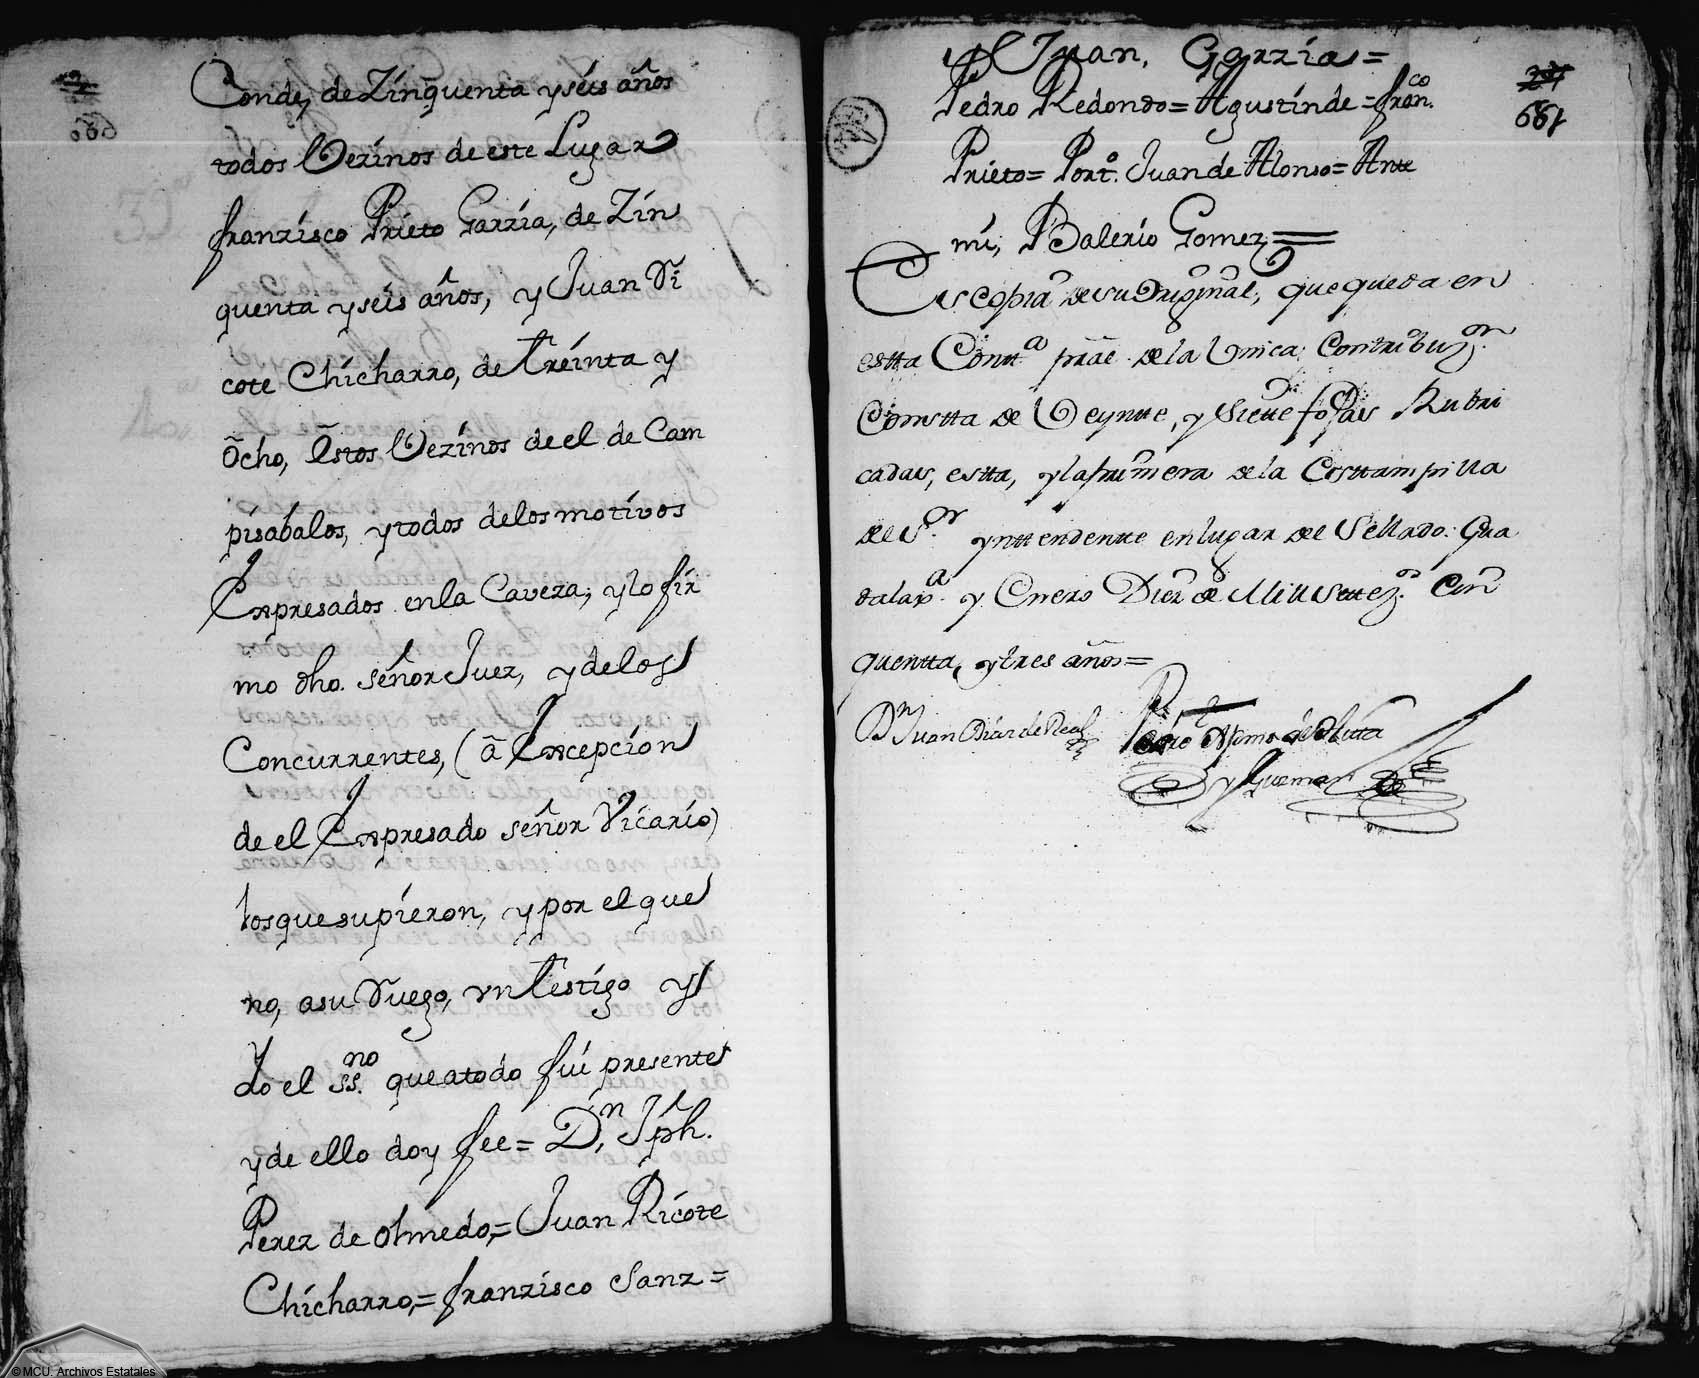 Conde, de Zinquenta y séis años
todos Vezinos de este Lugar
franzisco Prieto Garzía, de Zin
quenta y séis años, y Juan Ri
cote Chicharro, de treinta y
õcho, Estos Vezinos de el de Cam
pisábalos, y todos delos motivos
Expresados en la Caveza; y lo fir
mo dho. señor Juez, y delos
Concurrentes, (â Excepcion
de el Expresado señor Vicario)
los que supieron, y por el que
no, a su Ruego, vn testigo y
Yo el ss.no que a todo fui presente
y de ello doy fee = D.n Jph.
Perez de olmedo, = Juan Ricote
Chicharro, = franzisco Sanz =
Juan, Garzia =
Pedro Redondo = Agustinde = fran.co
Prieto = Port.º Juan de Alonso = Ante
mi, Balerio Gomez =
Es copia de su Original, que queda en
estta Contt.a prâl. de la Unica Contribuz.on
Constta de Veyntte, y Siette foxas Rubri
cadas, estta, y la primera de la Esttampilla
del S.or ynttendentte en lugar de Sellado: Gua
dalax.a y Enero Diez de Mill Settez.os Cin
quentta, y tres años =
D.n Juan Diaz de Real
y Guzman
661
© MCU. Archivos Estatales